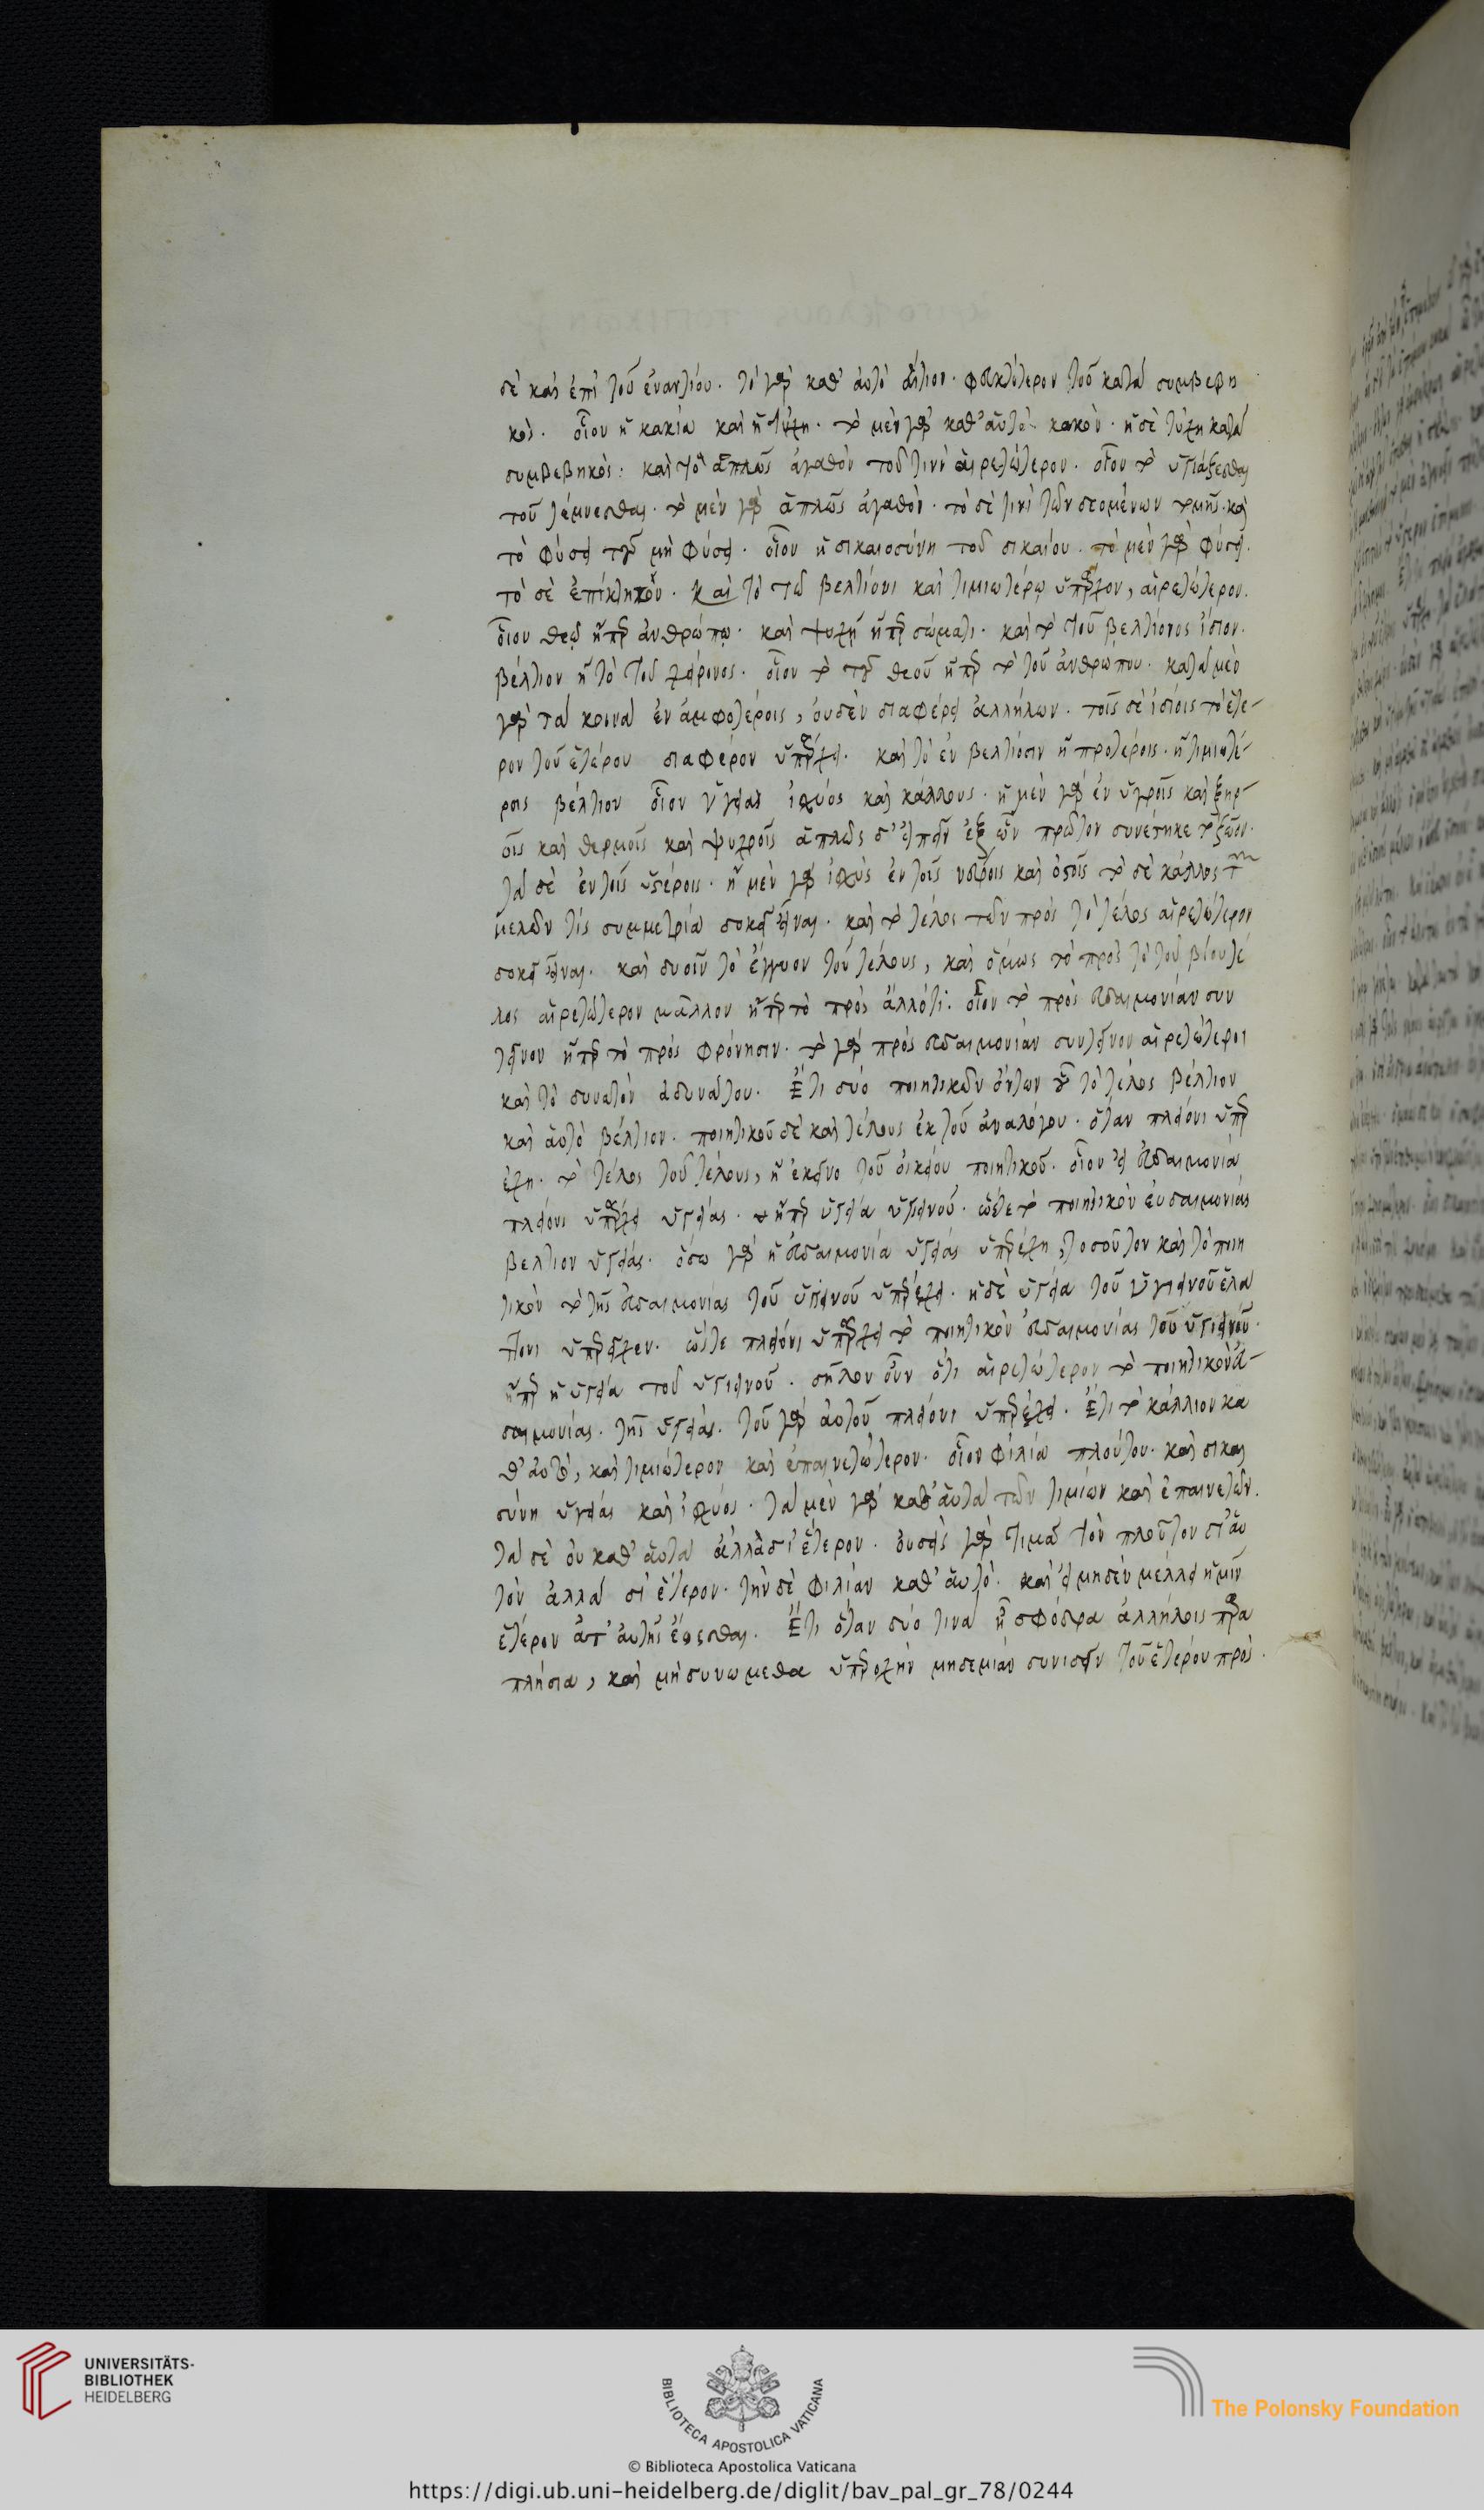 δὲ καὶ ἐπὶ τοῦ ἐναντίου. τὸ γὰρ καθ' αὑτὸ αἴτιον. φαυλότερον τοῦ κατὰ συμβεβη
κὸς. οἷον ἡ κακία καὶ ἡ τύχη. τὸ μὲν γὰρ καθ' αὑτὸ κακὸν. ἡ δὲ τύχη κατὰ
συμβεβηκὸς: καὶ τὸ ἁπλῶς ἀγαθὸν τοῦ τινὶ αἱρετώτερον. οἷον τὸ ὑγιάζεσθαι
τοῦ τέμνεσθαι. τὸ μὲν γὰρ ἁπλῶς ἀγαθὸν. τὸ δὲ τινὶ τῶν δεομένων τομῆς. καὶ
τὸ φύσει τοῦ μὴ φύσει. οἷον ἡ δικαιοσύνη τοῦ δικαίου. τὸ μὲν γὰρ φύσει.
τὸ δὲ ἐπίκτητον. καὶ τὸ τῶ βελτίονι καὶ τιμιωτέρω ὑπάρχον, αἱρετώτερον.
οἷον θεῷ ἤπερ ἀνθρώπῳ. καὶ ψυχῇ ἤπερ σώματι. καὶ τὸ τοῦ βελτίονος ἴδιον.
βέλτιον ἢ τὸ τοῦ χείρονος. οἷον τὸ τοῦ θεοῦ ἤπερ τὸ τοῦ ἀνθρώπου. κατὰ μὲν
γὰρ τὰ κοινὰ ἐν ἀμφοτέροις, οὐδὲν διαφέρει ἀλλήλων. τοῖς δὲ ἰδίοις τὸ ἕτε-
ρον τοῦ ἑτέρου διαφέρον ὑπάρχει. καὶ τὸ ἐν βελτίοσιν ἢ προτέροις. ἢ τιμιωτέ-
ροις βέλτιον οἷον ὑγεία ἰσχύος καὶ κάλλους. ἡ μὲν γὰρ ἐν ὑγροῖς καὶ ξηρ-
οῖς καὶ θερμοῖς καὶ ψυχροῖς ἁπλῶς δ' εἰπεῖν ἐξ ὧν πρῶτον συνέστηκε τὸ ζῶον.
τὰ δὲ ἐν τοῖς ὑστέροις. ἡ μὲν γὰρ ἰσχὺς ἐν τοῖς νεύροις καὶ ὀστοῖς τὸ δὲ κάλλος τῶν
μελῶν τὶς συμμετρία δοκεῖ εἶναι. καὶ τὸ τέλος τῶν πρὸς τὸ τέλος αἱρετώτερον
δοκεῖ εἶναι. καὶ δυοῖν τὸ ἔγγιον τοῦ τέλους, καὶ ὅμως τὸ πρὸς τὸ τοῦ βίου τέ
λος αἱρετώτερον μᾶλλον ἤπερ τὸ πρὸς ἄλλό τι. οἷον τὸ πρὸς εὐδαιμονίαν συν
τεῖνον ἤπερ τὸ πρὸς φρόνησιν. τὸ γὰρ πρὸς εὐδαιμονίαν συντεῖνον αἱρετώτερον
καὶ τὸ δυνατὸν ἀδυνάτου. Ἔτι δύο ποιητικῶν ὄντων οὗ τὸ τέλος βέλτιον
καὶ αὐτὸ βέλτιον. ποιητικοῦ δὲ καὶ τέλους ἐκ τοῦ ἀναλόγου. ὅταν πλείονι ὑπερ
έχη. τὸ τέλος τοῦ τέλους, ἢ ἐκεῖνο τοῦ οἰκείου ποιητικοῦ. οἷον εἰ εὐδαιμονία
πλείονι ὑπερέχει ὑγείας. ἤπερ ὑγεία ὑγιεινοῦ. ὥστε τὸ ποιητικὸν εὐδαιμονίας
βελτιον ὑγείας. ὅσω γὰρ ἡ εὐδαιμονία ὑγείας ὑπερέχη, τοσοῦτον καὶ τὸ ποιη
τικὸν τὸ τῆς εὐδαιμονίας τοῦ ὑγιεινοῦ ὑπερέχει. ἡ δὲ ὑγεία τοῦ ὑγιεινοῦ ἐλά
ττονι ὑπερεῖχεν. ὥστε πλείονι ὑπερέχει τὸ ποιητικὸν εὐδαιμονίας τοῦ ὑγιεινοῦ.
ἤπερ ἡ ὑγεία τοῦ ὑγιεινοῦ. δῆλον οὖν ὅτι αἱρετώτερον τὸ ποιητικὸν εὐ-
δαιμονίας. τῆς ὑγείας. τοῦ γὰρ αὐτοῦ πλείονι ὑπερέχει. Ἔτι τὸ κάλλιον κα
θ' αὑτὸ, καὶ τιμιώτερον καὶ ἐπαινετώτερον. οἷον φιλία πλούτου. καὶ δικαι
σύνη ὑγείας καὶ ἰσχύος. τὰ μὲν γὰρ καθ' αὑτὰ τῶν τιμίων καὶ ἐπαινετῶν.
τὰ δὲ οὐ καθ' αὑτὰ ἀλλὰ δι' ἕτερον. οὐδεὶς γὰρ τιμᾶ τὸν πλοῦτον δι' ἑαυ
τὸν ἀλλὰ δι' ἕτερον. τὴν δὲ φιλίαν καθ' αὑτὸ. καὶ εἰ μηδὲν μέλλει ἡμῖν
ἕτερον ἀπ' αὐτῆς ἔσεσθαι. Ἔτι ὅταν δύο τινὰ ἦ σφόδρα ἀλλήλοις παρα
πλήσια, καὶ μὴ δυνωμεθα ὑπεροχὴν μηδεμίαν συνιδεῖν τοῦ ἑτέρου πρὸς
UNIVERSITÄTS-
BIBLIOTHEK
HEIDELBERG
BIBLIOTECA APOSTOLICA VATICANA
The Polonsky Foundation
© Biblioteca Apostolica Vaticana
https://digi.ub.uni-heidelberg.de/diglit/bav_pal_gr_78/0244